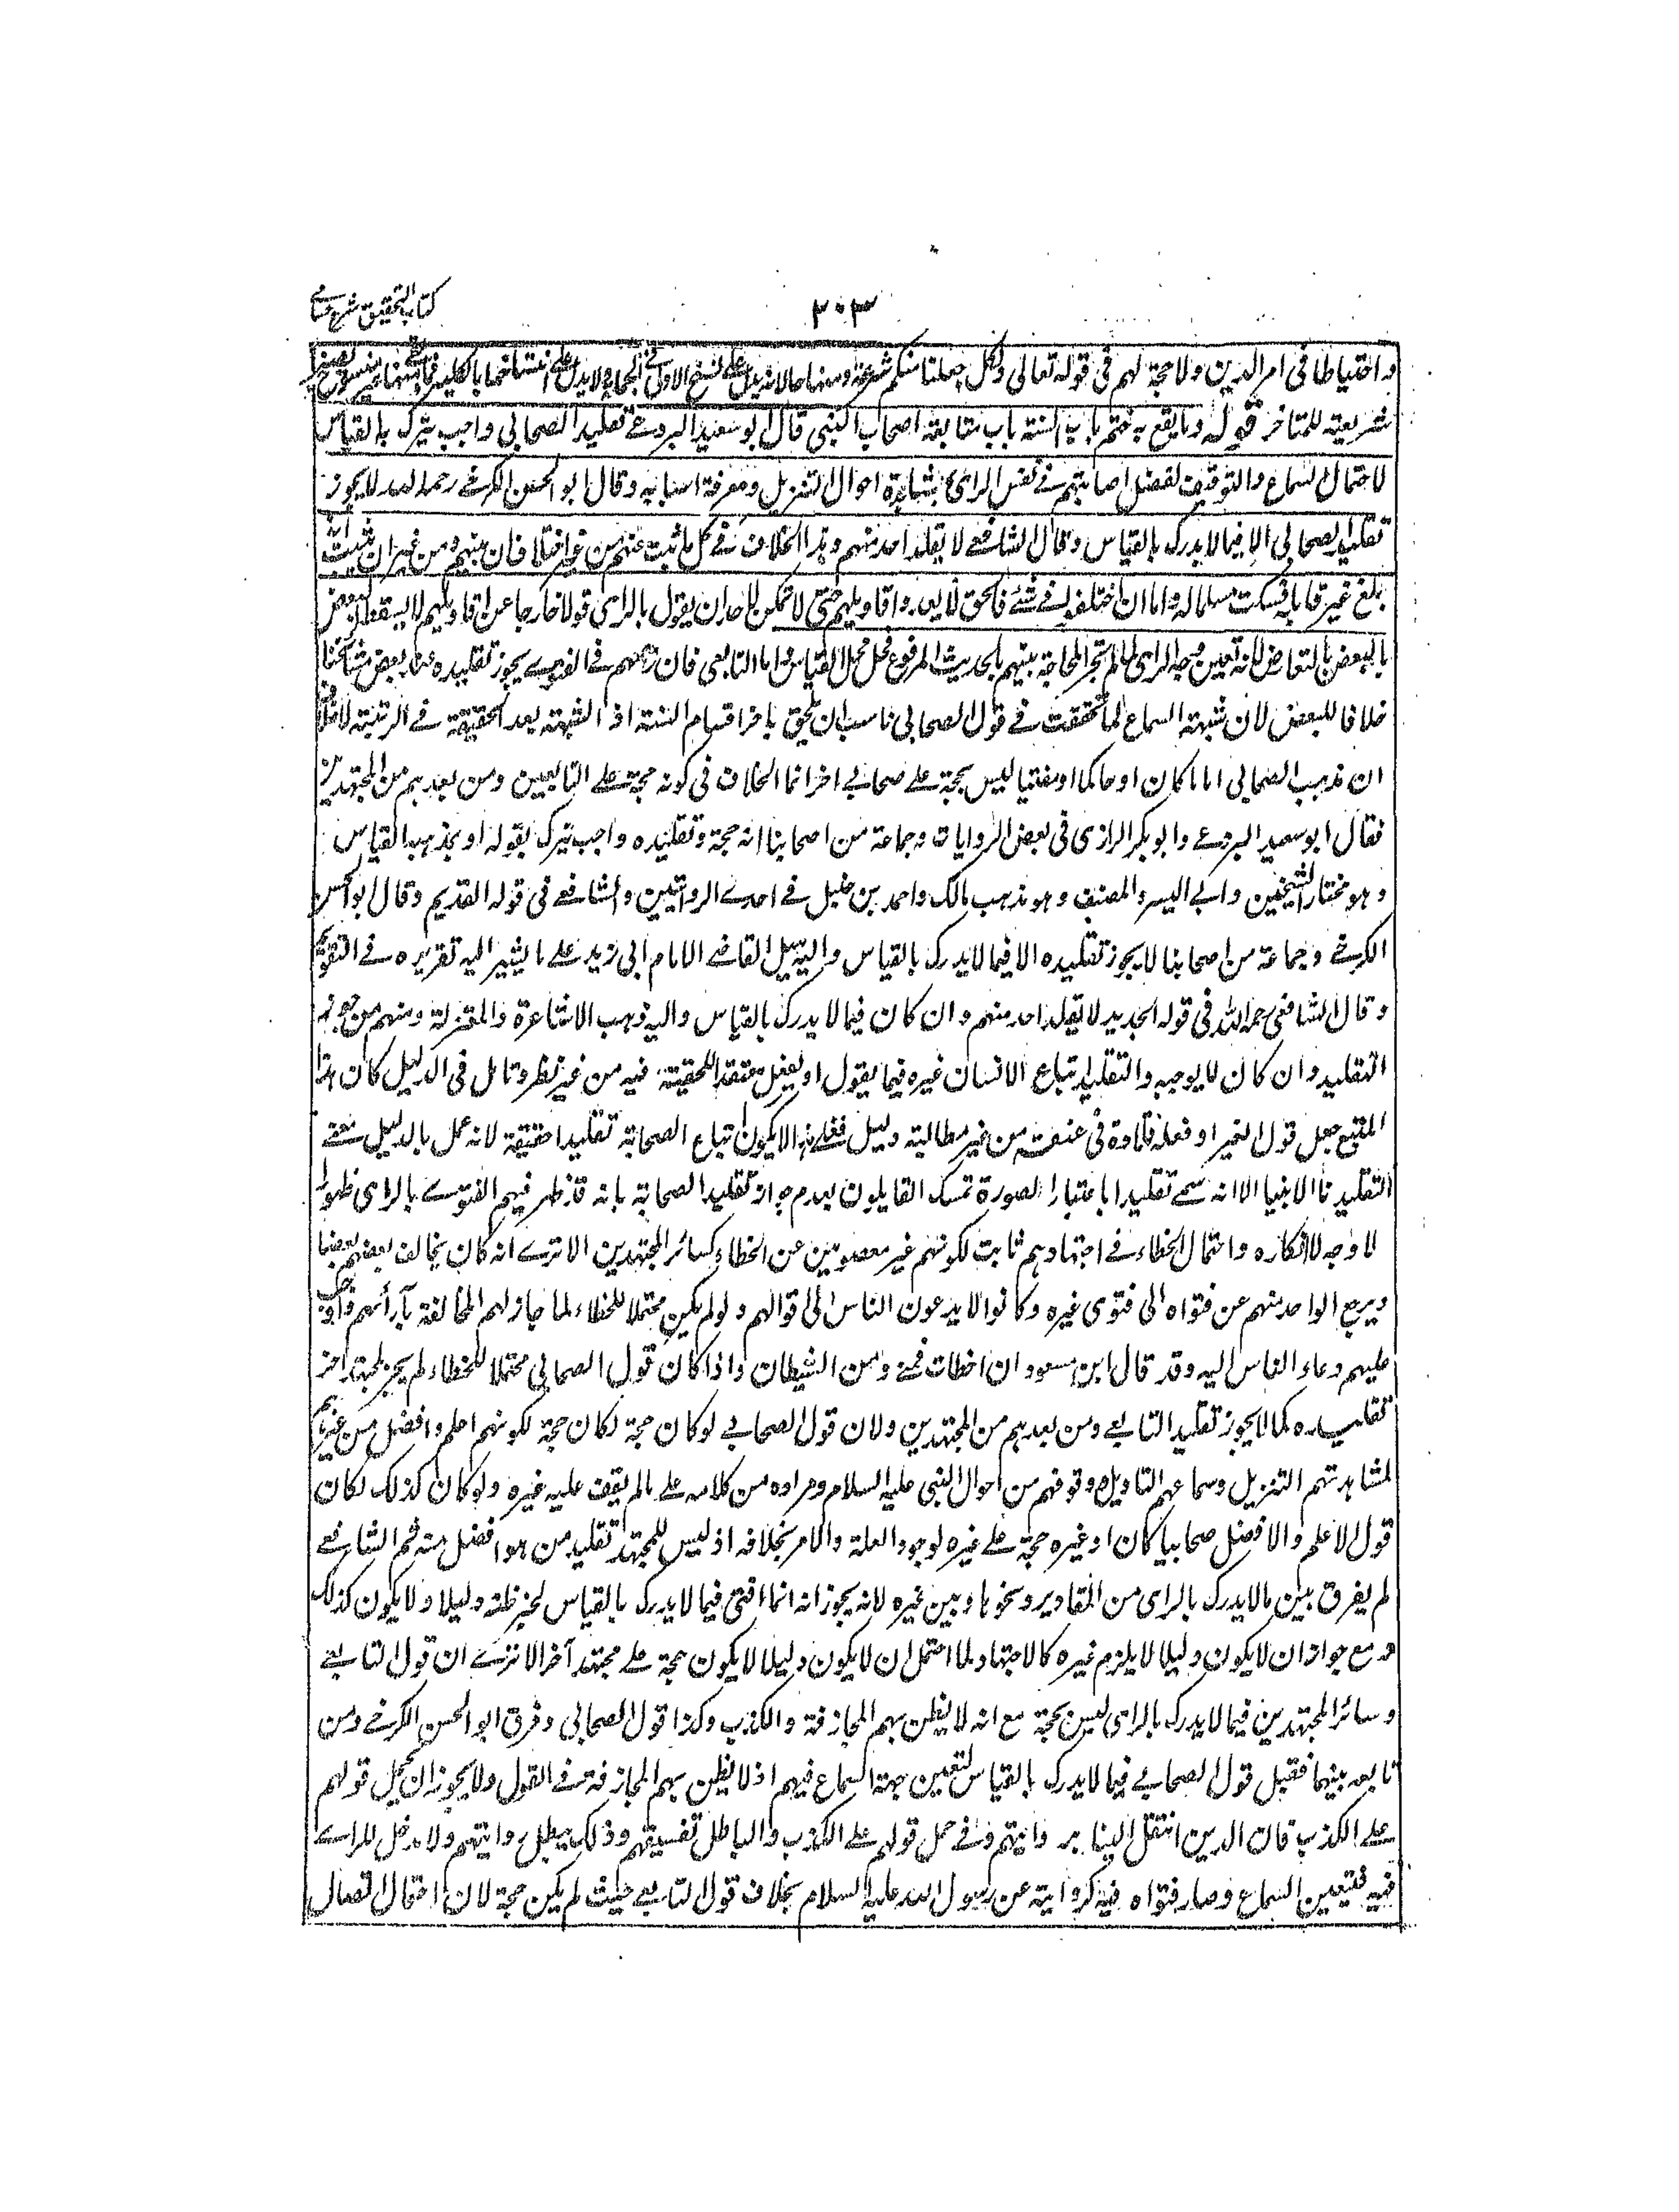 كتاب التحقيق شرح حسامي
٢٠٣
واحتياطا فى امر الدين ولا حجة لهم فى قوله تعالى ولكل جعلنا منكم شرعة ومنهاجا لانه يدل على نسخ الاول فى الجملة ولا يدل على انتساخها بالكلية
شريعته للمتاخر قوله وما يقع به ختم باب السنة باب متابعة اصحاب النبى قال ابو سعيد البردعى تقليد الصحابى واجب يترك بالقياس
لاحتمال السماع والتوقيف لفضل اصابتهم فے نفس الراى بمشاهدة احوال التنزيل ومعرفة اسبابه وقال ابو الحسن الكرخے رحمه الله لا يجوز
تقليد الصحابى الا فيما لا يدرك بالقياس وقال الشافعے لا يقلد احد منهم وهذا الخلاف فے كل ما ثبت عنهم من غير اختلاف بينهم ومن غير ان يثبت انه
بلغ غير قايله فسكت مسلما له واما ان اختلفوا فے شئ فالحق لا يعدوا اقاويلهم حتى لا يتمكن لاحد ان يقول بالراى قولا خارجا عن اقاويلهم لا يسقط البعض
بالبعض بالتعارض لانه تعين وجه الراى لما لم تجر المحاجة بينهم بالحديث المرفوع فحل محل القياس واما التابعى فان زاحمهم فے الفتوے يجوز تقليده عند بعض مشائخنا
خلافا للبعض لان شبهة السماع لما تحققت فے قول الصحابى ناسب ان يلحق باخر اقسام السنة اذ الشبهة بعد الحقيقة فے الرتبة لا خلاف
ان مذهب الصحابى اماما كان او حاكما او مفتيا ليس بحجة علے صحابے اخر انما الخلاف فى كونه حجة علے التابعين ومن بعدهم من المجتهدين
فقال ابو سعيد البردعے وابو بكر الرازى فى بعض الروايات وجماعة من اصحابنا انه حجة وتقليده واجب يترك بقوله او بمذهبه القياس
وهو مختار الشيخين وابى اليسر والمصنف وهو مذهب مالك واحمد بن حنبل فے احدے الروايتين والشافعے فى قوله القديم وقال ابو الحسن
الكرخے وجماعة من اصحابنا لا يجوز تقليده الا فيما لا يدرك بالقياس واليه ميل القاضے الامام ابى زيد علے ما يشير اليه تقريره فے التقويم
وقال الشافعى رحمه الله فى قوله الجديد لا يقلد احد منهم وان كان فيما لا يدرك بالقياس واليه ذهب الاشاعرة والمعتزلة ومنهم من جوز
التقليد وان كان لا يوجبه والتقليد اتباع الانسان غيره فيما يقول او يفعل معتقدا للحقية فيه من غير نظر وتامل فى الدليل كان هذا
المتبع جعل قول الغير او فعله قلادة فى عنقه من غير مطالبة دليل فعلے هذا لا يكون اتباع الصحابة تقليدا حقيقة لانه عمل بالدليل معنے
التقليد الا انه سمے تقليدا باعتبار الصورة تمسك القايلون بعدم جواز تقليد الصحابة بانه قد ظهر فيهم الفتوے بالراى ظهورا
لا وجه لانكاره واحتمال الخطاء فے اجتهادهم ثابت لكونهم غير معصومين عن الخطاء كسائر المجتهدين الا ترے انه كان يخالف بعضهم بعضا
ويرجع الواحد منهم عن فتواه الى فتوى غيره وكانوا لا يدعون الناس الى اقوالهم ولو لم يكن محتملا للخطاء لما جاز لهم المخالفة بآرائهم ووجب
عليهم دعاء الناس اليه وقد قال ابن مسعود ان اخطات فمنے ومن الشيطان واذا كان قول الصحابى محتملا للخطاء لم يجز لمجتهد اخر
تقليده كما لا يجوز تقليد التابعے ومن بعدهم من المجتهدين ولان قول الصحابے لو كان حجة لكان حجة لكونهم اعلم وافضل من غيرهم
لمشاهدتهم التنزيل وسماعهم التاويل ووقوفهم من احوال النبى عليه السلام ومراده من كلامه علے ما لم يقف عليه غيره ولو كان كذلك لكان
قول الاعلم والافضل صحابيا كان او غيره حجة علے غيره لوجود العلة والامر بخلافه اذ ليس للمجتهد تقليد من هو افضل منه ثم الشافعے
لم يفرق بين ما لا يدرك بالراى من المقادير ونحوها وبين غيره لانه يجوز انه انما افتى فيما لا يدرك بالقياس لخبر ظنه دليلا ولا يكون كذلك
ومع جواز ان لا يكون دليلا لا يلزم غيره كالاجتهاد لما احتمل ان لا يكون دليلا لا يكون حجة علے مجتهد آخر الا ترے ان قول التابعے
وسائر المجتهدين فيما لا يدرك بالراى ليس بحجة مع انه لا يظن بهم المجازفة والكذب وكذا قول الصحابى وفرق ابو الحسن الكرخے ومن
تابعه بينهما فقبل قول الصحابے فيما لا يدرك بالقياس لتعين جهة السماع فيهم اذ لا يظن بهم المجازفة فے القول ولا يجوز ان يحمل قولهم
علے الكذب فان الدين انتقل الينا بروايتهم وفے حمل قولهم علے الكذب والباطل تفسيقهم وذلك يبطل روايتهم ولا مدخل للراے
فيه فتعين السماع وصار فتواه فيه كروايته عن رسول الله عليه السلام بخلاف قول التابعے حيث لم يكن حجة لان احتمال اتصال